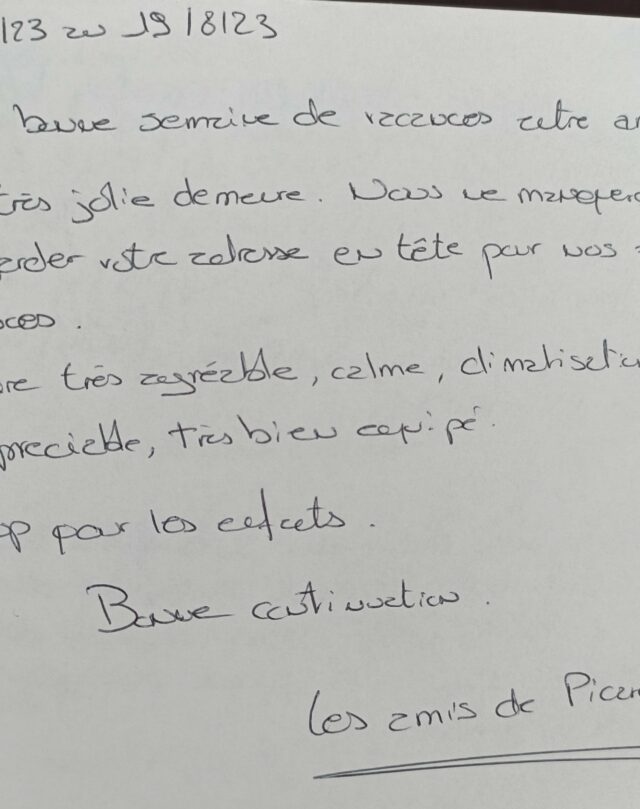 /23 au 19/8/23
bonne semaine de vacances cette an
très jolie demeure. Nous ne manquero
arder votre adresse en tête par nos
nces.
re très agréable, calme, climatisation
preciable, très bien equipé.
op pour les enfants.
Bonne continuation.
Les amis de Picar